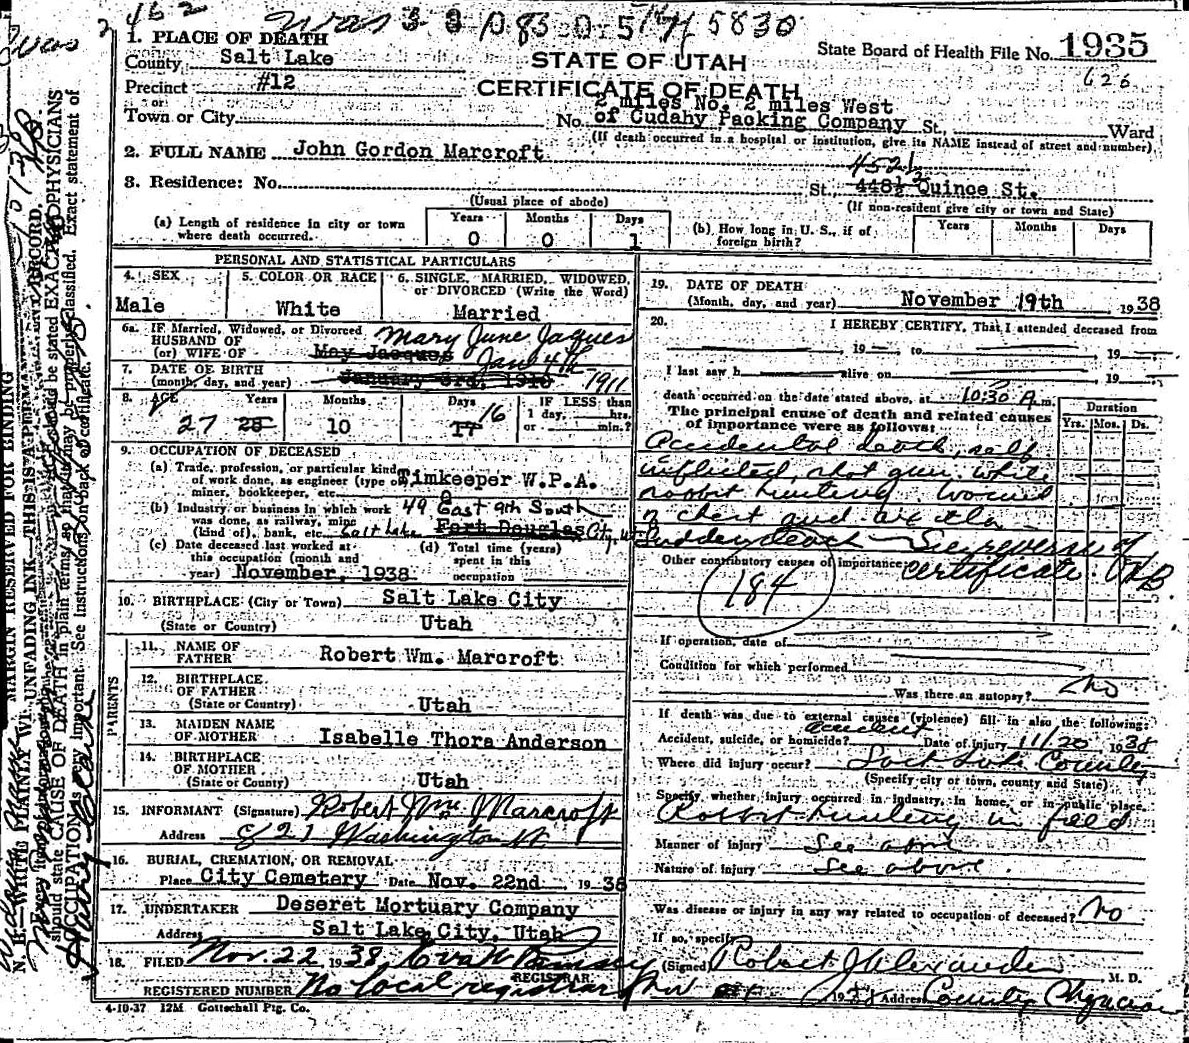 462 Was 3 8 1085 0 5 5830
1. PLACE OF DEATH
County Salt Lake
Precinct #12
or
Town or City
STATE OF UTAH
CERTIFICATE OF DEATH
State Board of Health File No. 1935
626
2 miles No. 2 miles West
No. of Cudahy Packing Company St., Ward
(If death occurred in a hospital or institution, give its NAME instead of street and number)
2. FULL NAME John Gordon Marcroft
452½
3. Residence: No. St., 448½ Quince St.
(Usual place of abode) (If non-resident give city or town and State)
(a) Length of residence in city or town where death occurred. Years 0 Months 0 Days 1
(b) How long in U. S., if of foreign birth? Years Months Days
PERSONAL AND STATISTICAL PARTICULARS
4. SEX Male
5. COLOR OR RACE White
6. SINGLE, MARRIED, WIDOWED, or DIVORCED (Write the Word) Married
6a. IF Married, Widowed, or Divorced
HUSBAND OF
(or) WIFE OF Mary June Jaques May Jacques
7. DATE OF BIRTH
(month, day, and year) January 3rd, 1910 Jan 4th 1911
8. AGE Years 27 28 Months 10 Days 17 16
IF LESS than
1 day, hrs.
or min.?
9. OCCUPATION OF DECEASED
(a) Trade, profession, or particular kind
of work done, as engineer (type of
miner, bookkeeper, etc. Timkeeper W.P.A.
(b) Industry or business in which work
was done, as railway, mine
(kind of), bank, etc. 49 East 9th South Salt Lake City, Ut Fort Douglas
(c) Date deceased last worked at
this occupation (month and
year) November, 1938
(d) Total time (years)
spent in this
occupation
10. BIRTHPLACE (City or Town) Salt Lake City
(State or Country) Utah
PARENTS
11. NAME OF
FATHER Robert Wm. Marcroft
12. BIRTHPLACE
OF FATHER
(State or Country) Utah
13. MAIDEN NAME
OF MOTHER Isabelle Thora Anderson
14. BIRTHPLACE
OF MOTHER
(State or Country) Utah
15. INFORMANT (Signature) Robert Wm. Marcroft
Address 821 Washington St.
16. BURIAL, CREMATION, OR REMOVAL
Place City Cemetery Date Nov. 22nd, 1938
17. UNDERTAKER Deseret Mortuary Company
Address Salt Lake City, Utah
18. FILED Nov. 22 1938,
REGISTRAR
REGISTERED NUMBER No local registrar
4-10-37 12M Gottschall Ptg. Co.
19. DATE OF DEATH
(Month, day, and year) November 19th 1938
20. I HEREBY CERTIFY, That I attended deceased from
, 19 to , 19
I last saw h alive on , 19
death occurred on the date stated above, at 10:30 A.m.
The principal cause of death and related causes
of importance were as follows:
Duration
Yrs. Mos. Ds.
Accidental death, self
inflicted, shot gun, while
rabbit hunting. Wound
of chest and axilla
Sudden death - See reverse of
Other contributory causes of importance: certificate.
184
If operation, date of
Condition for which performed
Was there an autopsy? No
If death was due to external causes (violence) fill in also the following:
Accident, suicide, or homicide? accident Date of injury 11/20 1938
Where did injury occur? Salt Lake County
(Specify city or town, county and State)
Specify whether injury occurred in industry, in home, or in public place.
Rabbit hunting in field
Manner of injury See above
Nature of injury See above.
Was disease or injury in any way related to occupation of deceased? No
If so, specify
(Signed) Robert J Alexander M. D.
Address County Physician
MARGIN RESERVED FOR BINDING
N. B.—WRITE PLAINLY WITH UNFADING INK—THIS IS A PERMANENT RECORD.
should state CAUSE OF DEATH in plain terms, so that it may be properly classified. Exact statement of
OCCUPATION is very important. See instructions on back of certificate.